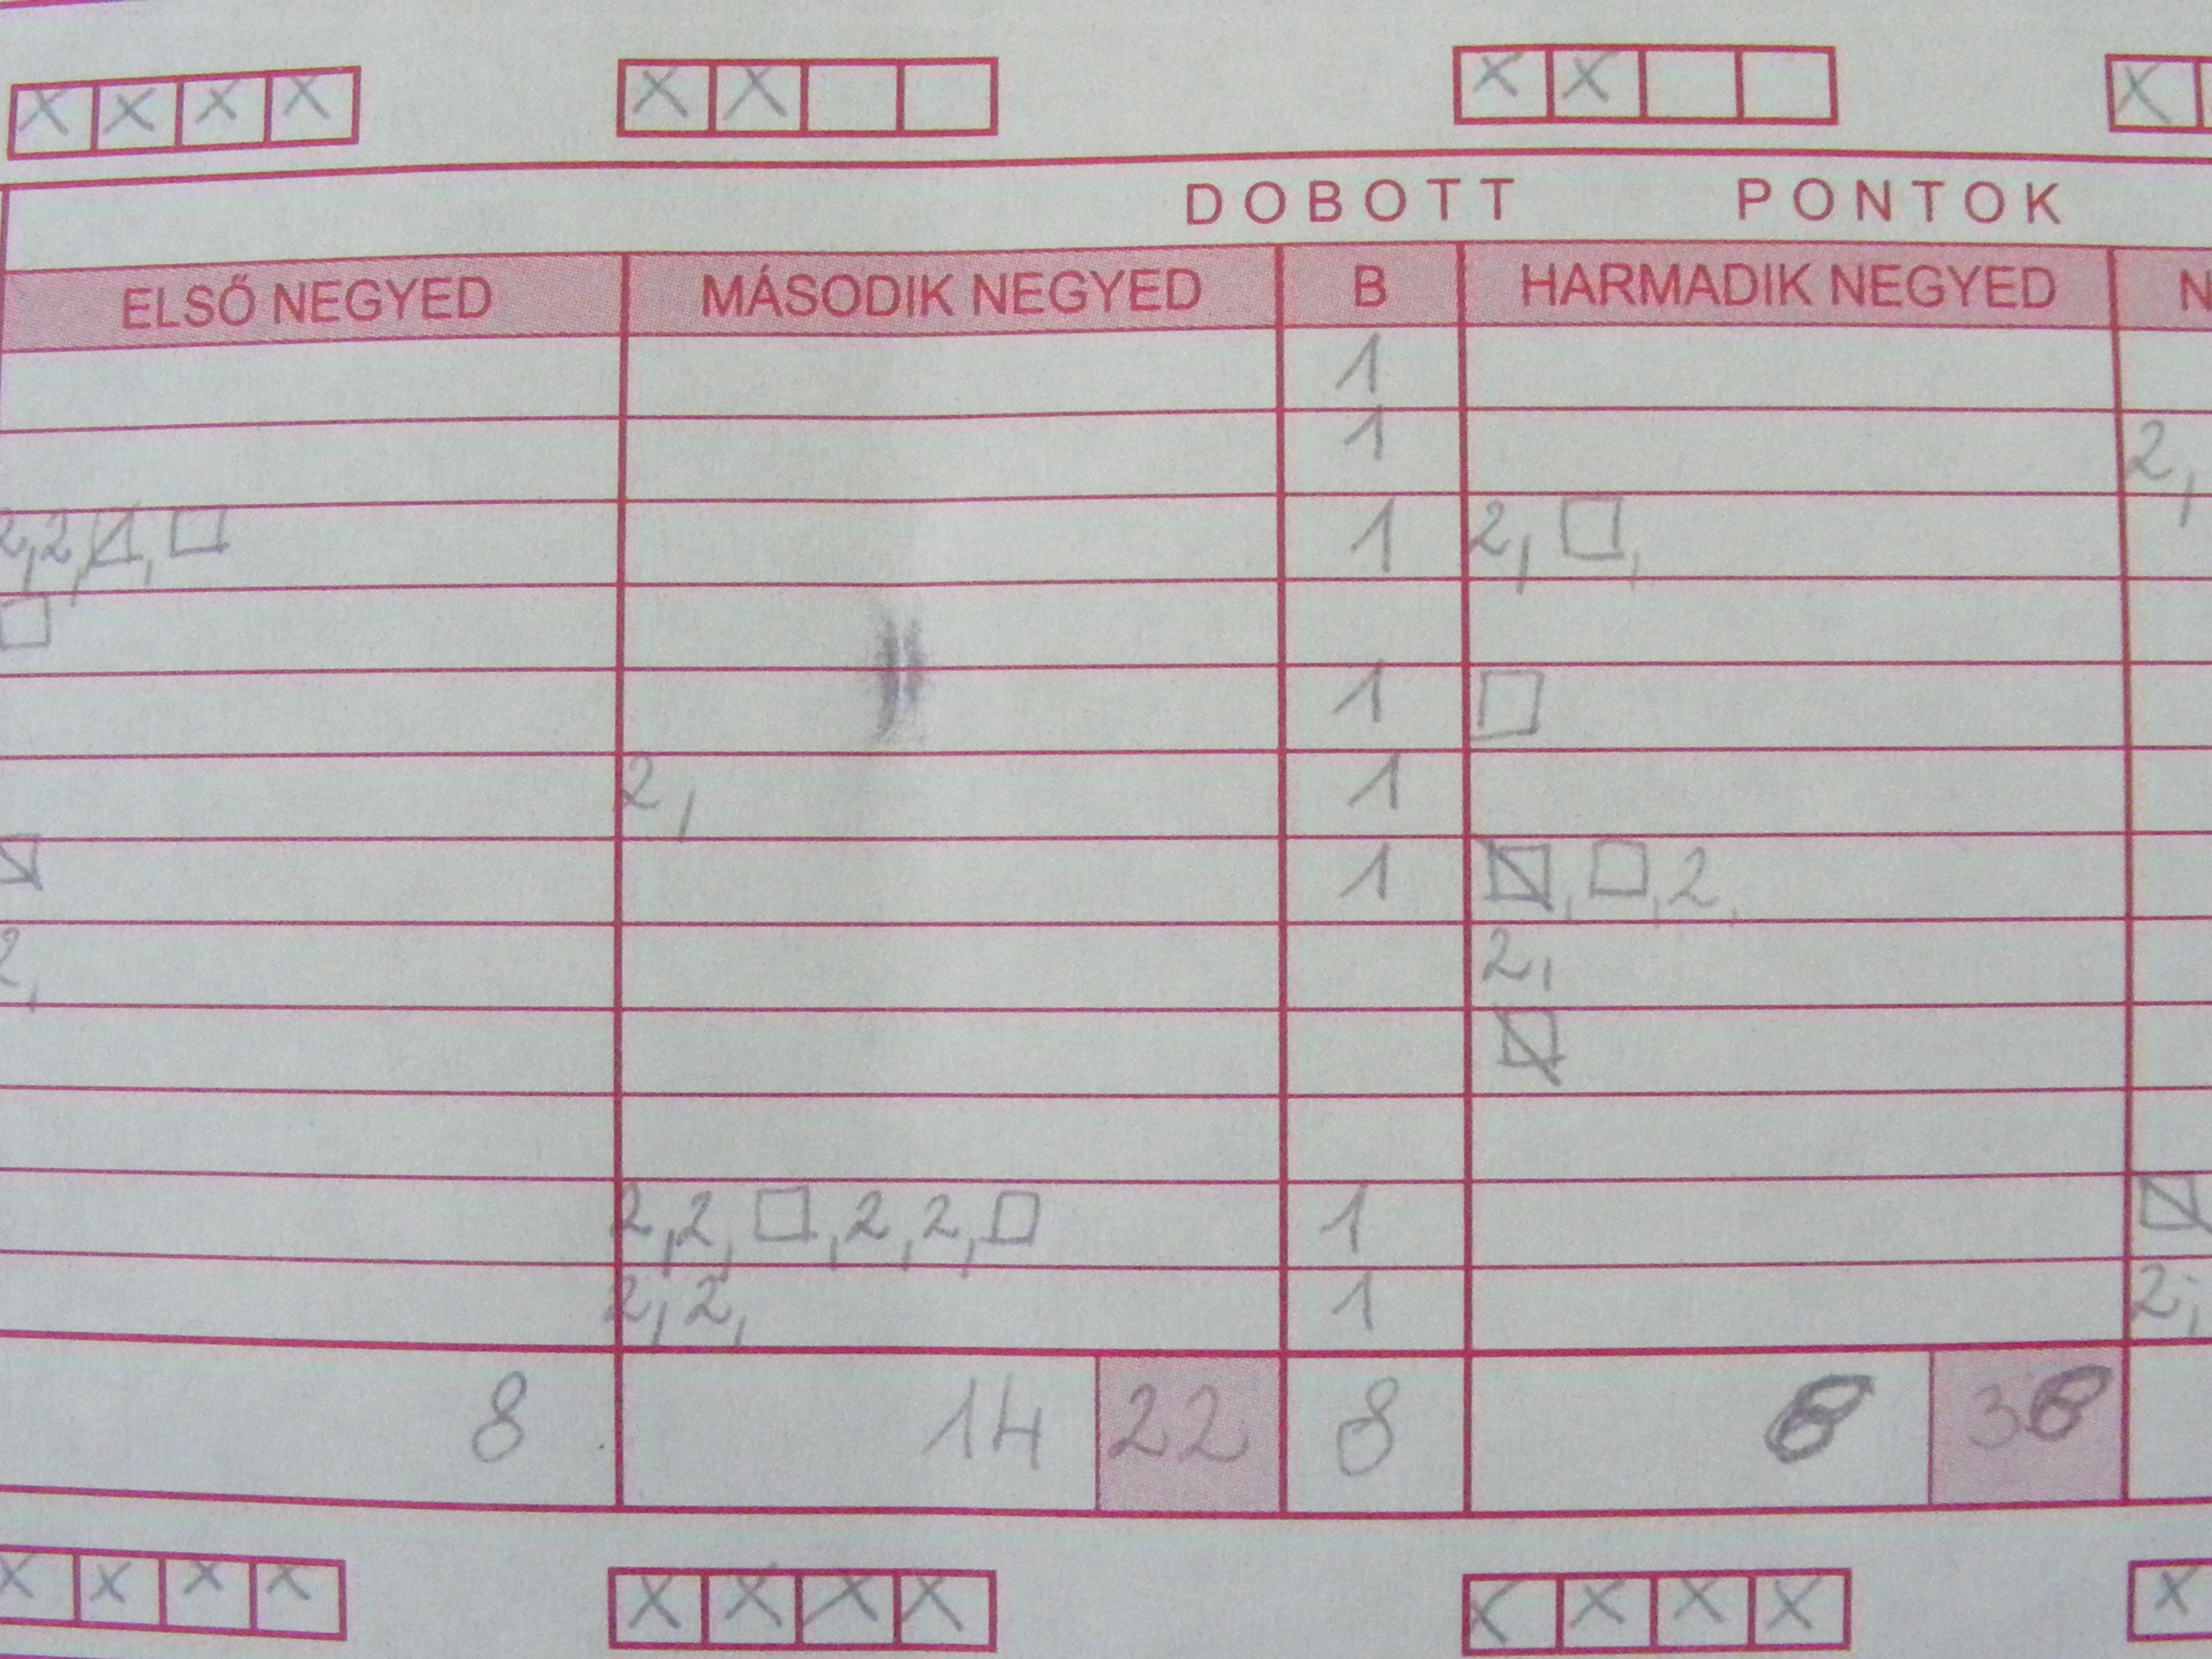 X X X X X X X X X
DOBOTT PONTOK
ELSŐ NEGYED MÁSODIK NEGYED B HARMADIK NEGYED N
1
1 2,
2,2, 1 2,
1
2, 1
1 2,
2, 2,
2,2, ,2,2, 1
2,2, 1 2,
8 14 22 8
X X X X X X X X X X X X X